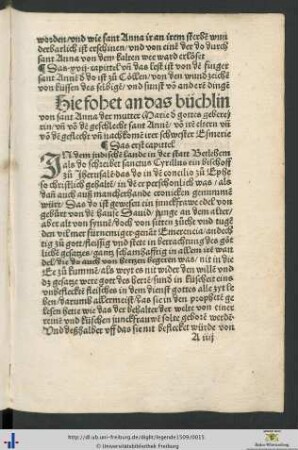 werden/vnd wie sant Anna ir an irem sterbē wun
derbarlich ist erschinen/vnd von einē der do durch
sant Anna von dem kalten wee ward erlöset
¶ Das .xvij. capittel vñ das lest ist von dē finger
sant Annē d̄ do ist zů Cöllen/von den wund zeichē
von küssen des selbigē/vnd sunst vō anderē dingē
Hie fohet an das büchlin
von sant Anna der mutter Marie d̄ gottes gebere
rin/vñ vō dē geschlecht sant Annē/vō irē eltern vñ
vō dē geslecht vñ nachkōmē irer schwester Esmerie
¶ Das erst capittel
IN dem iudischē lande in der statt Bethlehem
als do schreibet sanctus Cyrillus ein bischoff
zů Jherusalē das do in dē concilio zů Ephe
so christlich gehaltē/in dē er persönlich was/als
dañ auch auß mancherhande cronicken genummē
würt/Das do ist gewesen ein junckfrawe edel von
gebürt von dē hause Dauid/junge an dem alter/
aber alt von synnē/doch von sitten züchte vnd tugē
den vil mer fürnemiger genāt Emerencia/andech
tig zů gott/fleissig vnd stete in betrachtung des göt
lichē gesatzes/gantz schamhafftig in allem irē wan
del/die do auch von hertzen begeren was/nit in die
Ee zů kummē/als weyt es nit wider den willē vnd
dz gesatze were gott des herrē/sund in küscheit eins
vnbeflecktē fleisches in dem dienst gottes alle zyt le
ben/darumb allermeist/das sie in den prophetē ge
lesen hette wie das der behalter der welte von einer
reinē vnd küschen junckfrauwē solte geborē werdē
Vnd deßhalber vff das sie nit beflecket würde von
A iiij
http://dl.ub.uni-freiburg.de/diglit/legende1509/0011
© Universitätsbibliothek Freiburg